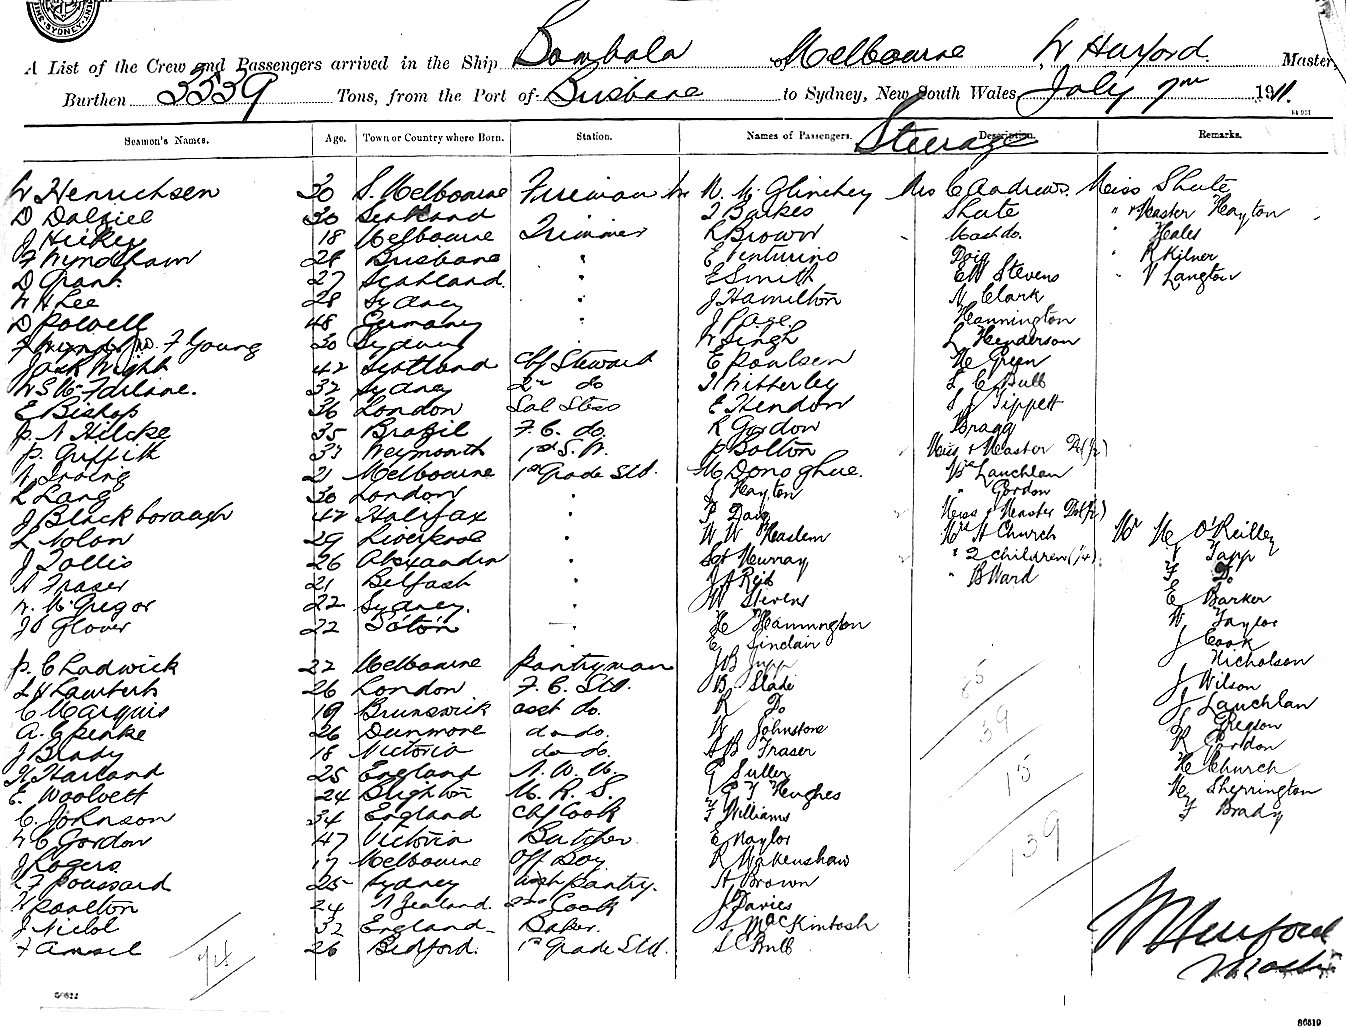 SYDNEY
A List of the Crew and Passengers arrived in the Ship Bombala of Melbourne W Hurford. Master,
Burthen 3539 Tons, from the Port of Brisbane to Sydney, New South Wales July 7th 1911.
Seamen's Names. Age. Town or Country where Born. Station. Names of Passengers. Steerage Description. Remarks.
W Henrichsen 30 S. Melbourne Fireman Mr N. McGlinchey Mrs C Andrews. Miss Shute
D Dalziel 30 Scotland T Barkes Shute " + Master Hayton
J Hickey 18 Melbourne Trimmer R Brown Mast do. " Hales
F Wyndham 28 Brisbane " E Venturino Doig " R Kilner
D Grant 27 Scotland " E Smith EW Stevens " V Langton
W H Lee 28 Sydney " J Hamilton N Clark
D Powell 48 Germany " J Page Hannington
F Young 30 Sydney W Singh L Henderson
Jack Wight 42 Scotland Chf Steward E Poulsen He Green
W S McFarlane. 37 Sydney 2nd do T Witterley L C Bull
E Bishop 36 London Sal Stess E Hendon S J Tippett
P. A Hilcke 35 Brazil F. C. do. R Gordon Bragg
P. Griffith 37 Weymouth 1st S. W. P Bolton Miss + Master Do(½)
N Irving 21 Melbourne 1st Grade Std. M Donoghue. Mrs Lauchlan
L Lang 30 London " J Hayton " Gordon
J Blackborough 47 Halifax " P Daig Miss + Master Do(½)
L Nolan 29 Liverpool " W W Haslem Mrs A Church Mr He O'Reilley
J Tollis 26 Alexandria " Sgt Murray " 2 children (¼) J Tapp
A Fraser 21 Belfast " J A Reid " B Ward F Do
N. McGregor 22 Sydney. " W Stevens E Barker
J Glover 22 Soton " He Hannington W Taylor
E Sinclair J Cook
P. Chadwick 22 Melbourne Pantryman J B Jupp Nicholson
L H Lambert 26 London F. C. Std. B Slade J Wilson
C Marquis 19 Brunswick asst do. R Do J Lauchlan
A. G Peake 26 Dunmore do do. W Johnstone S Gregson
J Brady 18 Victoria do do. A B Fraser R Gordon
H Harland 25 England N. W. U. G Suller He Church
E. Woolvett 24 Brighton M. R. S. E Y Hughes He Sherrington
C. Johnson 34 England Chf Cook F Williams F Brady
W C Gordon 47 Victoria Butcher E Naylor
J Rogers 17 Melbourne Off Boy R Wakenshaw
L F Poussard 25 Sydney Pantry. A Brown
F Poulton 24 N Zealand. 2nd Cook J Davies
J Nield 32 England Baker. S MacKintosh
F Amsel 26 Bedford. 1st Grade Std. L C Bull
85
39
15
139
74
W Hurford
Master